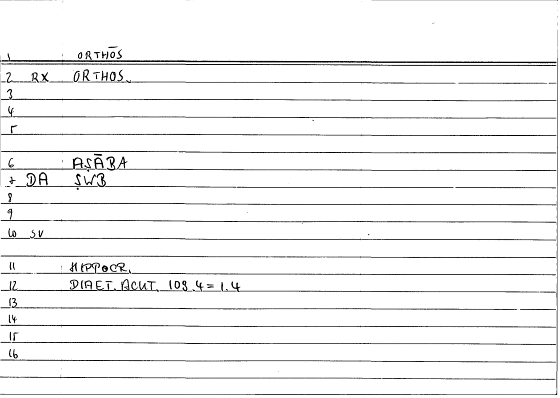 1 ORTHŌS
2 RX ORTHOS
3
4
5
6 AṢĀBA
7 DA ṢWB
8
9
10 SV
11 HIPPOCR.
12 DIAET. ACUT. 109.4 = 1.4
13
14
15
16